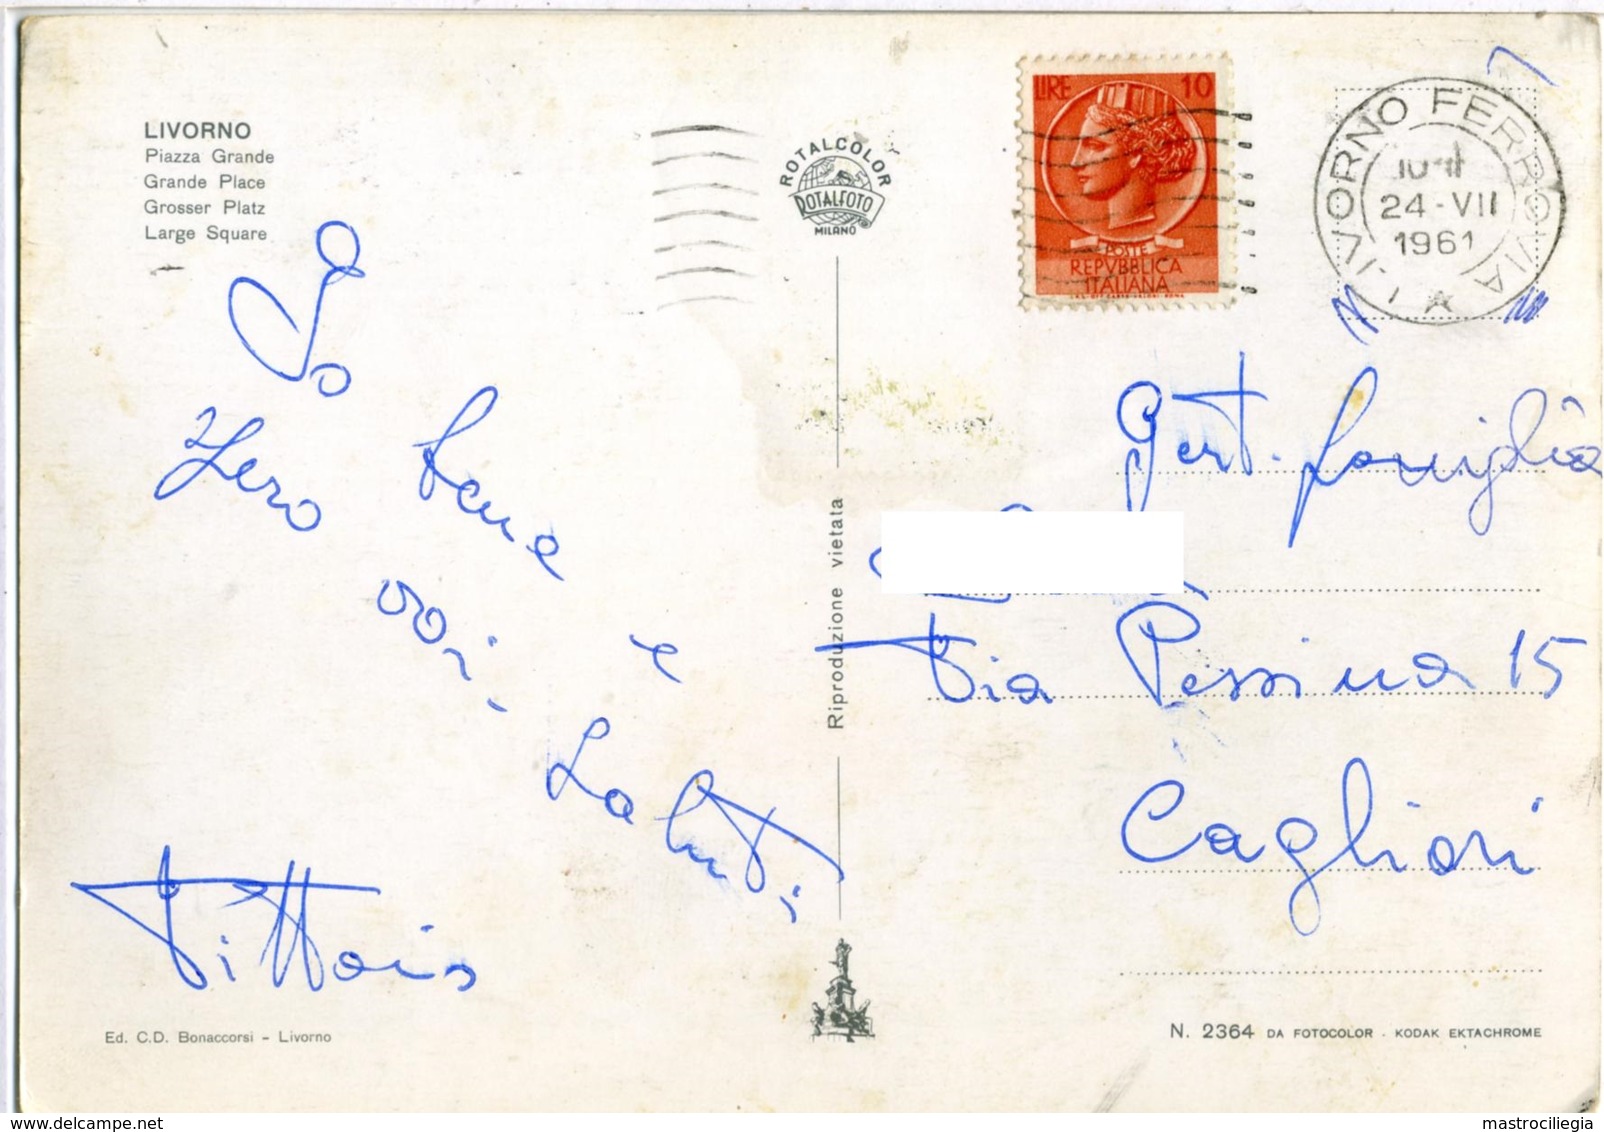 LIVORNO
Piazza Grande
Grande Place
Grosser Platz
Large Square
ROTALCOLOR
ROTALFOTO
MILANO
LIRE 10
POSTE
REPVBBLICA
ITALIANA
LIVORNO FERROVIA
24-VII
1961
Io bene e
spero voi.
Saluti
Vittorio
Riproduzione vietata
Gent. famiglia
Via Pessina 15
Cagliari
Ed. C.D. Bonaccorsi - Livorno
N. 2364 DA FOTOCOLOR - KODAK EKTACHROME
delcampe.net
mastrociliegia